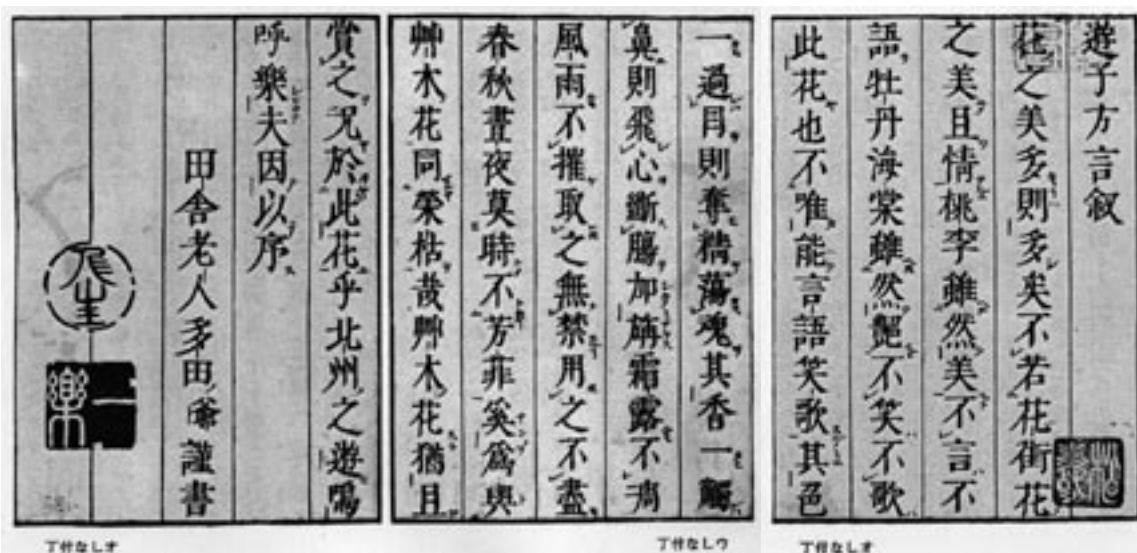 遊子方言叙
花之美多則多矣不若花街花
之美且情桃李雖然美不言不
語牡丹海棠雖然艶不笑不歌
此花也不唯能言語笑歌其色
一過目則奪精蕩魂其香一觸
鼻則飛心斷腸加旃霜露不凋
風雨不摧取之無禁用之不盡
春秋晝夜莫時不芳菲奚為與
艸木花同榮枯哉艸木花猶且
賞之况於此花乎北州之遊嗚
呼樂夫因以序
田舎老人多田爺謹書
丁付なしオ
丁付なしウ
丁付なしオ